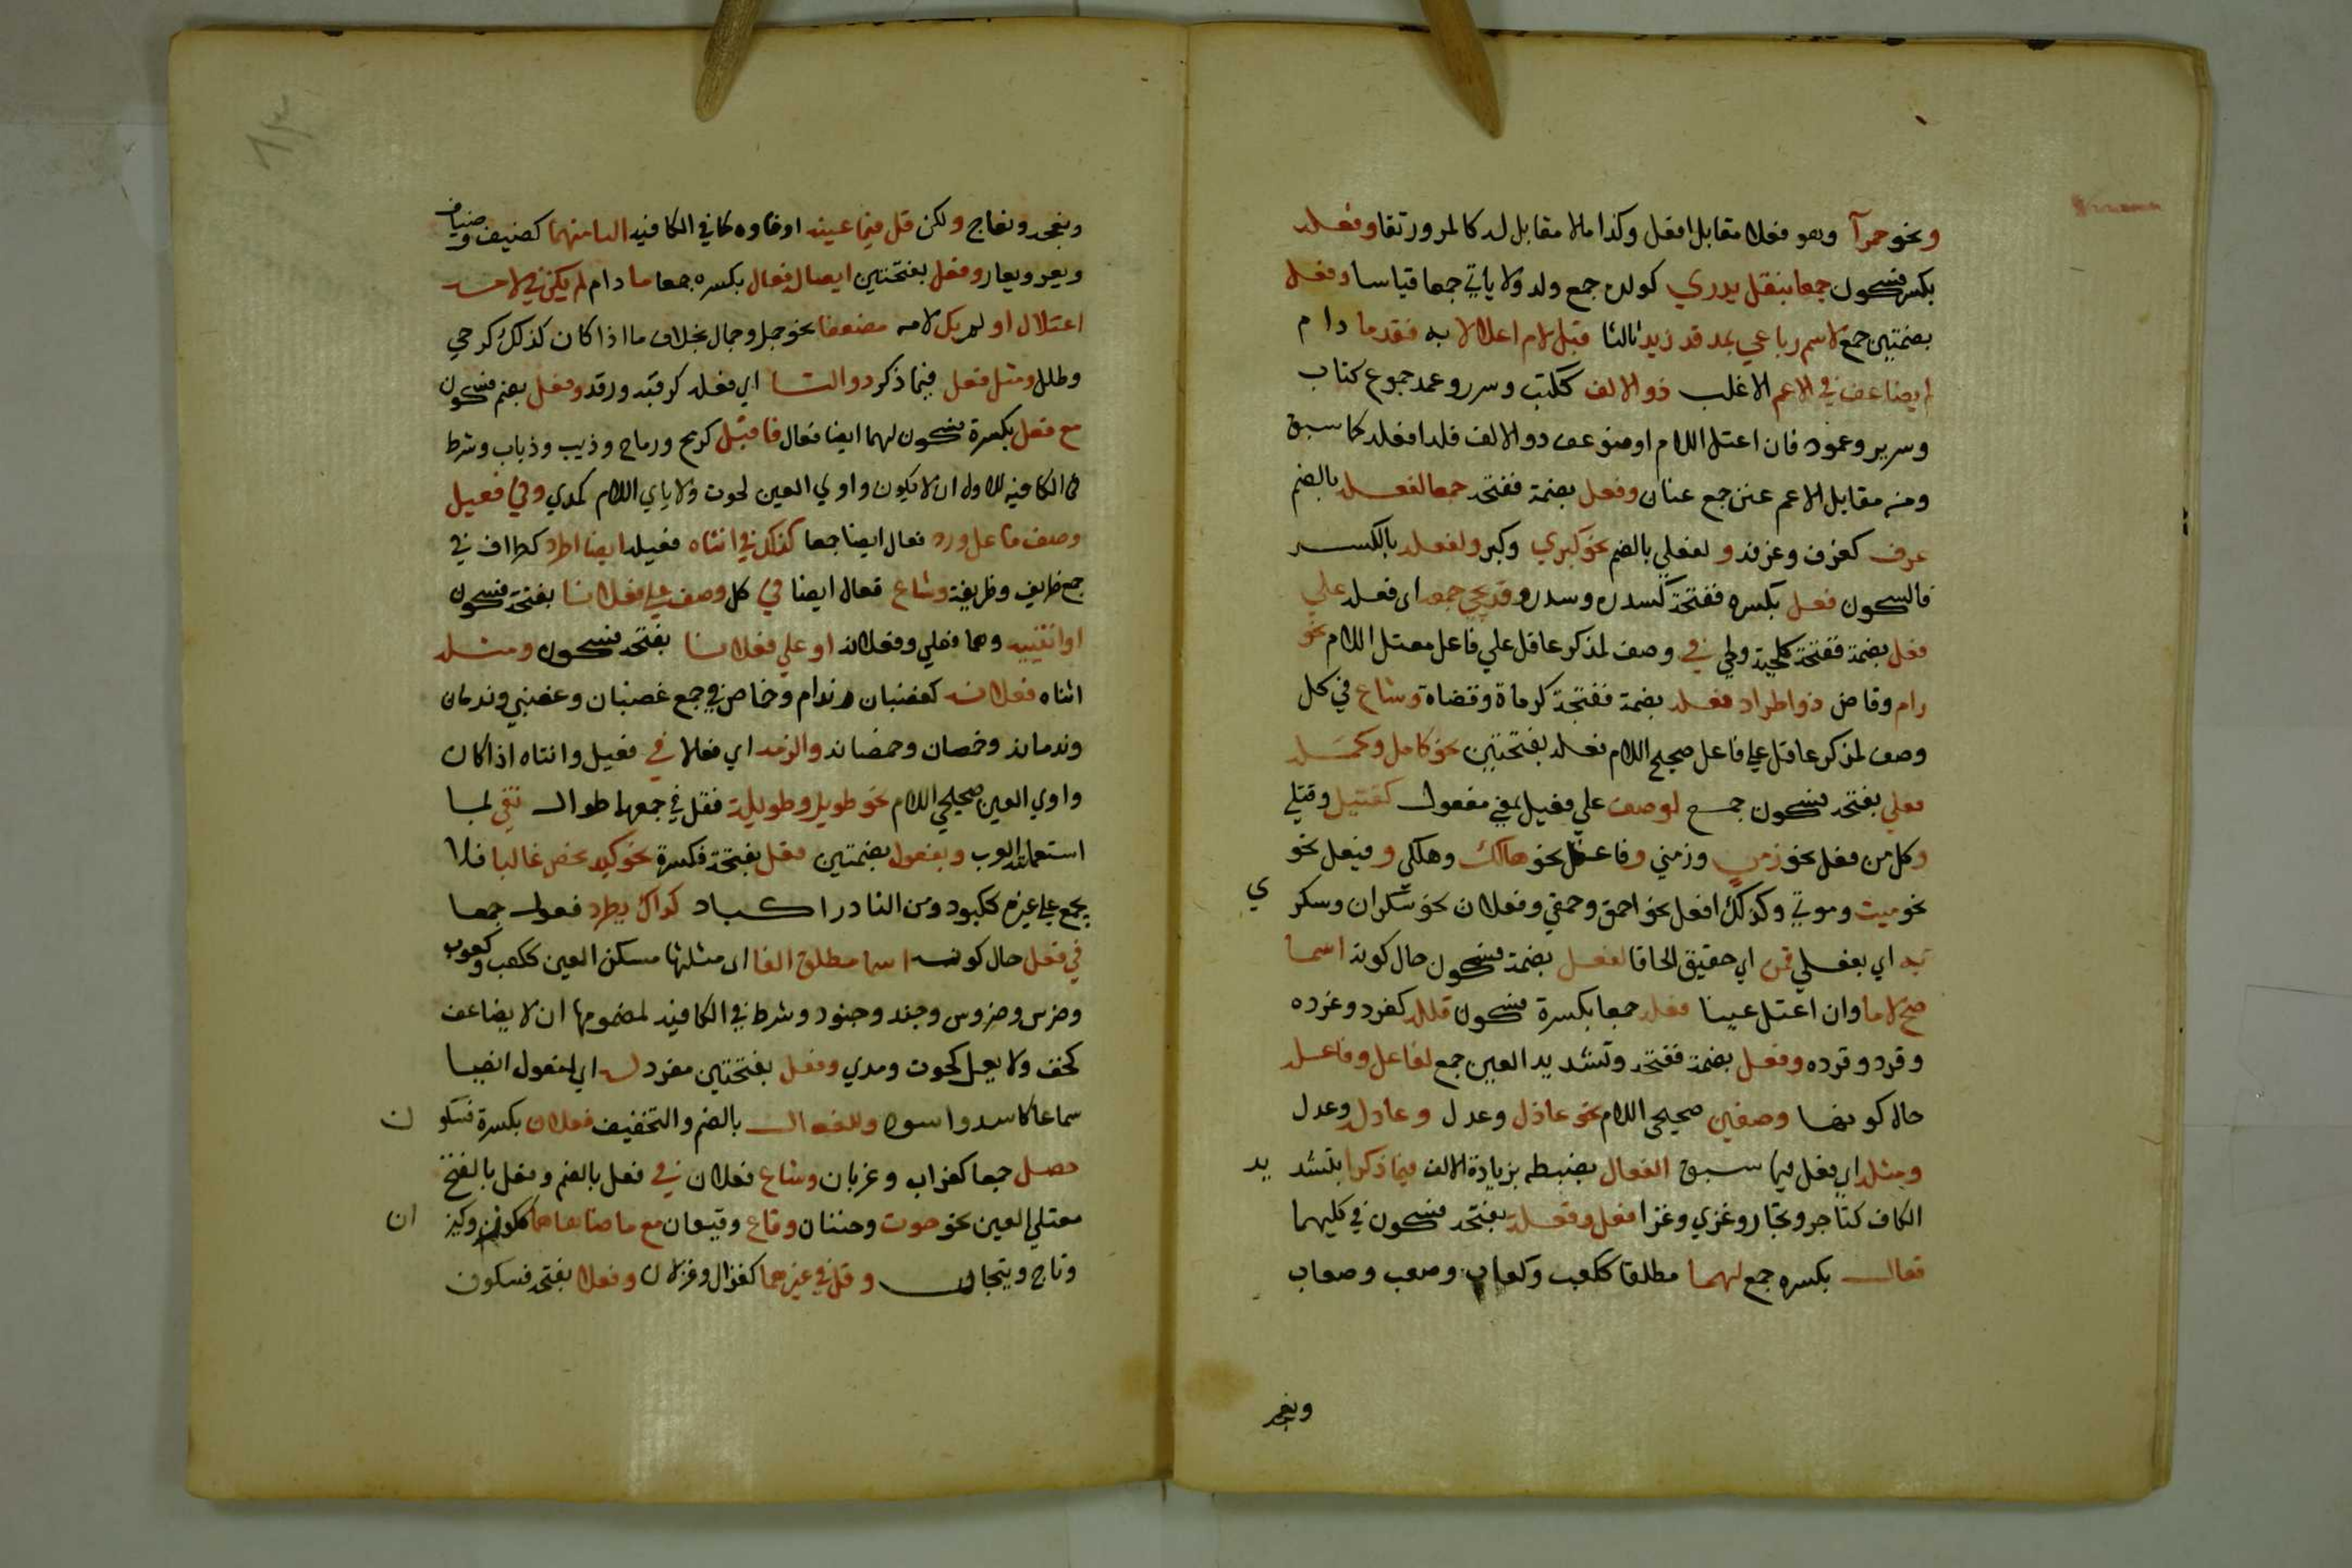 ونحو حمرآ وهو فعلا مقابل افعل وكذا مالا مقابل له كالمر ورتقا وفعله
بكسر فسكون جمعا بنقل يدري كولده جمع ولد ولا ياتي جمعا قياسا وفعل
بضمتين جمع لاسم رباعي بمد قد زيد ثالثا قبل لام اعلالا به فقد ما دام
لم يضاعف في الاعم الاغلب ذو الالف ككتب وسرر وعمد جموع كتاب
وسرير وعمود فان اعتل اللام او ضوعف ذو الالف فله افعله كما سبق
ومن مقابل الاعم عنن جمع عنان وفعل بضمة ففتحه جمعا لفعله بالضم
عرف كغرف وغرفه ولفعلي بالضم نحو كبري وكبر ولفعله بالكسر
فالسكون فعل بكسره ففتحة كسدره وسدر وقد يجي جمعه اى فعله علي
فعل بضمة ففتحة كلحية ولحي في وصف لمذكر عاقل علي فاعل معتل اللام نحو
رام وقاض ذو اطراد فعله بضمة ففتحة كرماة وقضاة وشاع في كل
وصف لمذكر عاقل علي فاعل صحيح اللام فعله بفتحتين نحو كامل وكمله
فعلي بفتحه فسكون جمع لوصف علي فعيل بمعني مفعول كقتيل وقتلي
وكل من فعل نحو زمن وزمني وفاعل نحو هالك وهلكي وفيعل نحو
نحو ميت وموتي وكذلك افعل نحو احمق وحمقي وفعلان نحو سكران وسكر ي
به اي بفعلي قمن اي حقيق الحاقا لفعل بضمة فسكون حال كونه اسما
صح لاما وان اعتل عينا فعله جمعا بكسرة فسكون قلله كغرد وغرده
وقرد وقرده وفعل بضمة ففتحه وتشديد العين جمع لفاعل وفاعله
حال كونهما وصفين صحيحي اللام نحو عاذل وعدل وعادله وعدل
ومثله اي فعل فيما سبق الفعال بضبطه بزيادة الالف فيما ذكرا بتشد يد
الكاف كتاجر وتجار وغزي وغزا فعل وفعلة بفتحه فسكون في كليهما
فعال بكسره جمع لهما مطلقا ككعب وكعاب وصعب وصعاب
ونعجه
ونعجه ونعاج ولكن قل فيما عينه او فاوه كما في الكافيه اليا منهما كضيف وضياف
ويعر ويعار وفعل بفتحتين ايضا له فعال بكسره جمعا ما دام لم يكن في لامه
اعتلال او لم يك لامه مضعفا نحو جبل وجبال بخلاف ما اذا كان كذلك كرحي
وطلل ومثل فعل فيما ذكر ذو التا اي فعله كرقبه ورقه وفعل بضم فسكون
مع فعل بكسرة فسكون لهما ايضا فعال فاقبل كرمح ورماح وذيب وذياب وشرط
في الكافيه للاول ان لا يكون واوي العين كحوت ولا يايي اللام كمدي وفي فعيل
وصف فاعل ورد فعال ايضا جمعا كذلك في انثاه فعيله ايضا اطرد كظراف في
جمع ظريف وظريفة وشاع فعال ايضا في كل وصف علي فعلانا بفتحة فسكون
او انثييه وهما فعلي وفعلانه او علي فعلانا بفتحه فسكون ومثله
انثاه فعلانه كغضبان وندام وخماص في جمع غضبان وغضبي وندمان
وندمانه وخمصان وخمصانه والزمه اي فعالا في فعيل وانثاه اذا كان
واوي العين صحيحي اللام نحو طويل وطويلة فقل في جمعهما طوال تفي لما
استعملته العرب وبفعول بضمتين فعل بفتحة فكسرة نحو كبد يخص غالبا فلا
يجمع علي غيره ككبود ومن النادر اكباد كذاك يطرد فعول جمعا
في فعل حال كونه اسما مطلق الفا اى مثلثها مسكن العين ككعب وكعوب
وضرس وضروس وجند وجنود وشرط في الكافيه لمضمومها ان لا يضاعف
كخف ولا يعل كحوت ومدي وفعل بفتحتين مفرد له اي لفعول ايضا
سماعا كاسد واسود وللفعال بالضم والتخفيف فعلان بكسرة فسكو ن
حصل جمعا كغراب وغربان وشاع فعلان في فعل بالضم وفعل بالفتح
معتلي العين نحو حوت وحيتان وقاع وقيعان مع ما ضاهاهما ككوز وكيز ان
وتاج وتيجان وقل في غيرهما كغزال وغزلان وفعلا بفتحه فسكون